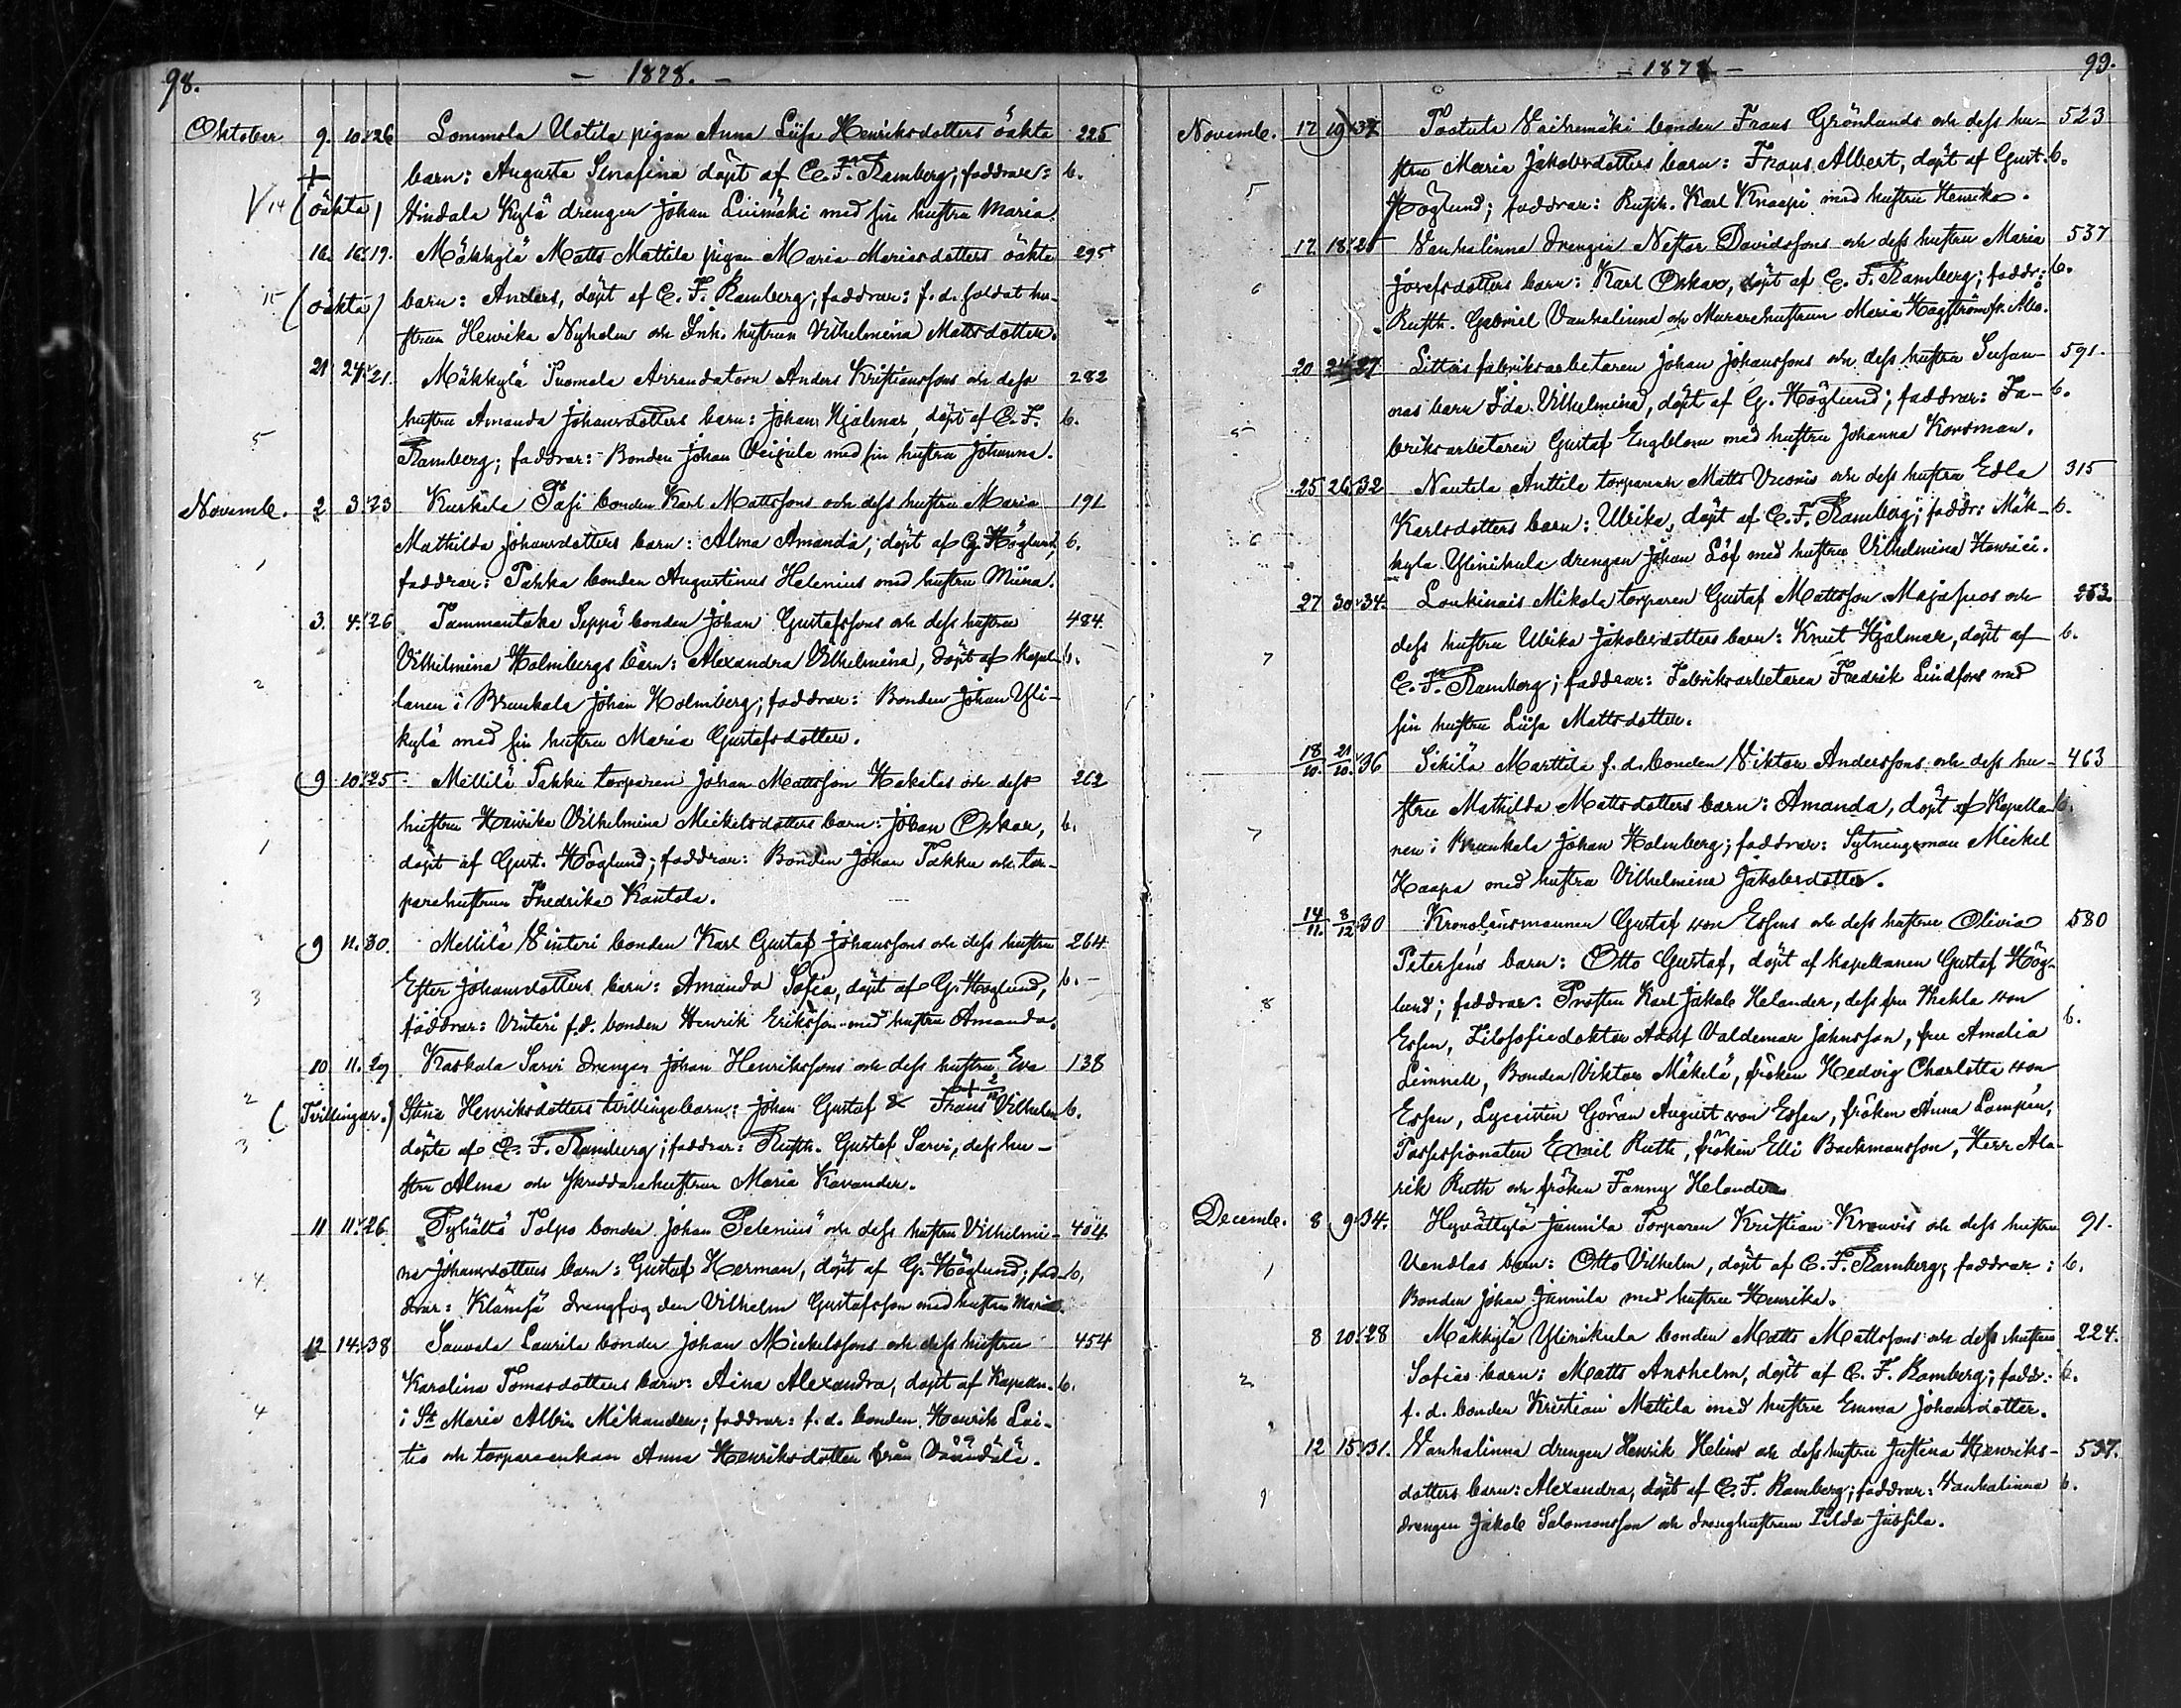 98.
- 1878. -
Oktober 9. 10. 26 Lommola Uotila pigan Anna Liisa Henriksdotters oäkta 225
+ barn: Augusta Serafina döpt af C. F. Ramberg; faddrar: b.
14 (oäkta) Kylä drengen Johan Liimäki med sin hustru Maria.
16. 16. 19. Mäkkylä Matts Mattila pigan Maria Mariasdotters oäkta 295
15 (oäkta) barn: Anders, döpt af C. F. Ramberg; faddrar: f. d. soldat hu-
strun Henrika Nyholm och Inh. hustrun Vilhelmina Mattsdotter.
21 24. 21. Mäkkylä Tuomola Arrendatorn Anders Kristianssons och dess 282
hustru Amanda Johansdotters barn: Johan Hjalmar, döpt af C. F. b.
5 Ramberg; faddrar: Bonden Johan med sin hustru Johanna.
Novemb. 2 3. 23 Kurkela Pasi bonden Karl Mattssons och dess hustru Maria 191
Mathilda Johansdotters barn: Alma Amanda, döpt af G. Höglund, b.
1 faddrar: Pahka bonden Augustinus Helenius med hustru Miina.
3. 4. 26 Tammentaka Seppä bonden Johan Gustafssons och dess hustru 484.
Vilhelmina Holmbergs barn: Alexandra Vilhelmina, döpt af Kapel- b.
2 lanen i Brunkala Johan Holmberg; faddrar: Bonden Johan Yli-
kylä med sin hustru Maria Gustafsdotter.
9 10. 25 Mellilä Takku torparen Johan Mattsson Hakalas och dess 262
hustru Henrika Vilhelmina Mickelsdotters barn: Johan Oskar, b.
1 döpt af Gust. Höglund; faddrar: Bonden Johan Takku och tor-
parehustrun Fredrika Kantola.
9 11. 30. Mellilä Vinteri bonden Karl Gustaf Johanssons och dess hustru 264
Ester Johansdotters barn: Amanda Sofia, döpt af G. Höglund, b.
3 faddrar: Vinteri f. d. bonden Henrik Eriksson med hustru Amanda.
10 11. 29 Kaskala Sarvi drengen Johan Henrikssons och dess hustru Eva 138
2 (Tvillingar.) Stina Henriksdotters tvillingebarn: Johan Gustaf & Frans Vilhelm b.
3 döpte af C. F. Ramberg; faddrar: Rusth. Gustaf Sarvi, dess hu-
stru Alma och skreddarehustrun Maria Kavander.
11 11. 26 Pyhältö Tolpo bonden Johan Pelenius och dess hustru Vilhelmi- 404
na Johansdotters barn: Gustaf Herman, döpt af G. Höglund; fad- b.
4. drar: Klämsä drengfogden Vilhelm Gustafsson med hustru Maria.
12 14. 38 Sauvala Laurila bonden Johan Mickelssons och dess hustru 454
Karolina Tomasdotters barn: Aina Alexandra, döpt af Kapellan. b.
4 i St Marie Albin Mikander; faddrar: f. d. bonden Henrik Lai-
tio och torpareenkan Anna Henriksdotter från Väändälä.
- 1878 -
99.
Novemb. 17 19. 37 Taatula Vaihemäki bonden Frans Grönlunds och dess hu- 523
stru Maria Jakobsdotters barn: Frans Albert, döpt af Gust. b.
5 Höglund; faddrar: Rusth. Karl Knaapi med hustru Henrika.
17 18. 25 Vanhalinna drengen Nestor Davidssons och dess hustru Maria 537
6 Josefsdotters barn: Karl Oskar, döpt af C. F. Ramberg; faddr: b.
Rusth. Gabriel Vanhalinna och Murarehustrun Maria Hagström fr. Åbo.
20 24. 27 Littois fabriksarbetaren Johan Johanssons och dess hustru Susan- 591.
nas barn Ida Vilhelmina, döpt af G. Höglund; faddrar: Fa- b.
5 briksarbetaren Gustaf Engblom med hustru Johanna Korsman.
25 26. 32 Nautela Anttila torparen Matts Vuoris och dess hustru Edla 315
Karlsdotters barn: Ulrika, döpt af C. F. Ramberg; faddr: Mäk- b.
6 kylä Ylinikula drengen Johan Löf med hustru Vilhelmina Henrici.
27 30. 34. Loukinais Mikola torparen Gustaf Mattsson Majasuos och 253.
dess hustru Ulrika Jakobsdotters barn: Knut Hjalmar, döpt af b.
7 C. F. Ramberg; faddrar: Fabriksarbetaren Fredrik Lindfors med
sin hustru Liisa Mattsdotter.
18/10. 21/10. 36 Sikilä Marttila f. d. bonden Viktor Anderssons och dess hu- 463
stru Mathilda Mattsdotters barn: Amanda, döpt af Kapella- b.
7 nen i Brunkala Johan Holmberg; faddrar: Sytningsman Mickel
Haapa med hustru Vilhelmina Jakobsdotter.
14/11. 8/12. 30 Kronolänsmannen Gustaf von Essens och dess hustru Olivia 580
Petersens barn: Otto Gustaf, döpt af Kapellanen Gustaf Hög-
8 lund; faddrar: Prosten Karl Jakob Helander, dess fru Thekla von
Essen, Filosofiedoktor Adolf Valdemar Jahnsson, fru Amalia b.
Limnell, Bonden Viktor Mäkelä, fröken Hedvig Charlotta von
Essen, Lyceisten Göran August von Essen, fröken Anna Lampén,
Possessionaten Emil Ruth, fröken Elli Backmansson, Herr Ala-
rik Ruth och fröken Fanny Helander.
Decemb. 8 9. 34. Hyvättylä Junnila Torparen Kristian Krouvis och dess hustru 91.
1 Vendlas barn: Otto Vilhelm, döpt af C. F. Ramberg; faddrar: b.
Bonden Johan Junnila med hustru Henrika.
8 10. 28 Mäkkylä Ylinikula bonden Matts Mattssons och dess hustru 224.
2 Sofias barn: Matts Anshelm, döpt af C. F. Ramberg; faddr: b.
f. d. bonden Kristian Mattila med hustru Emma Johansdotter.
12 15. 31. Vanhalinna drengen Henrik Helins och dess hustru Justina Henriks- 537.
1 dotters barn: Alexandra, döpt af C. F. Ramberg; faddrar: Vanhalinna b.
drengen Jakob Salomonsson och dreng hustrun Tilda Jussila.